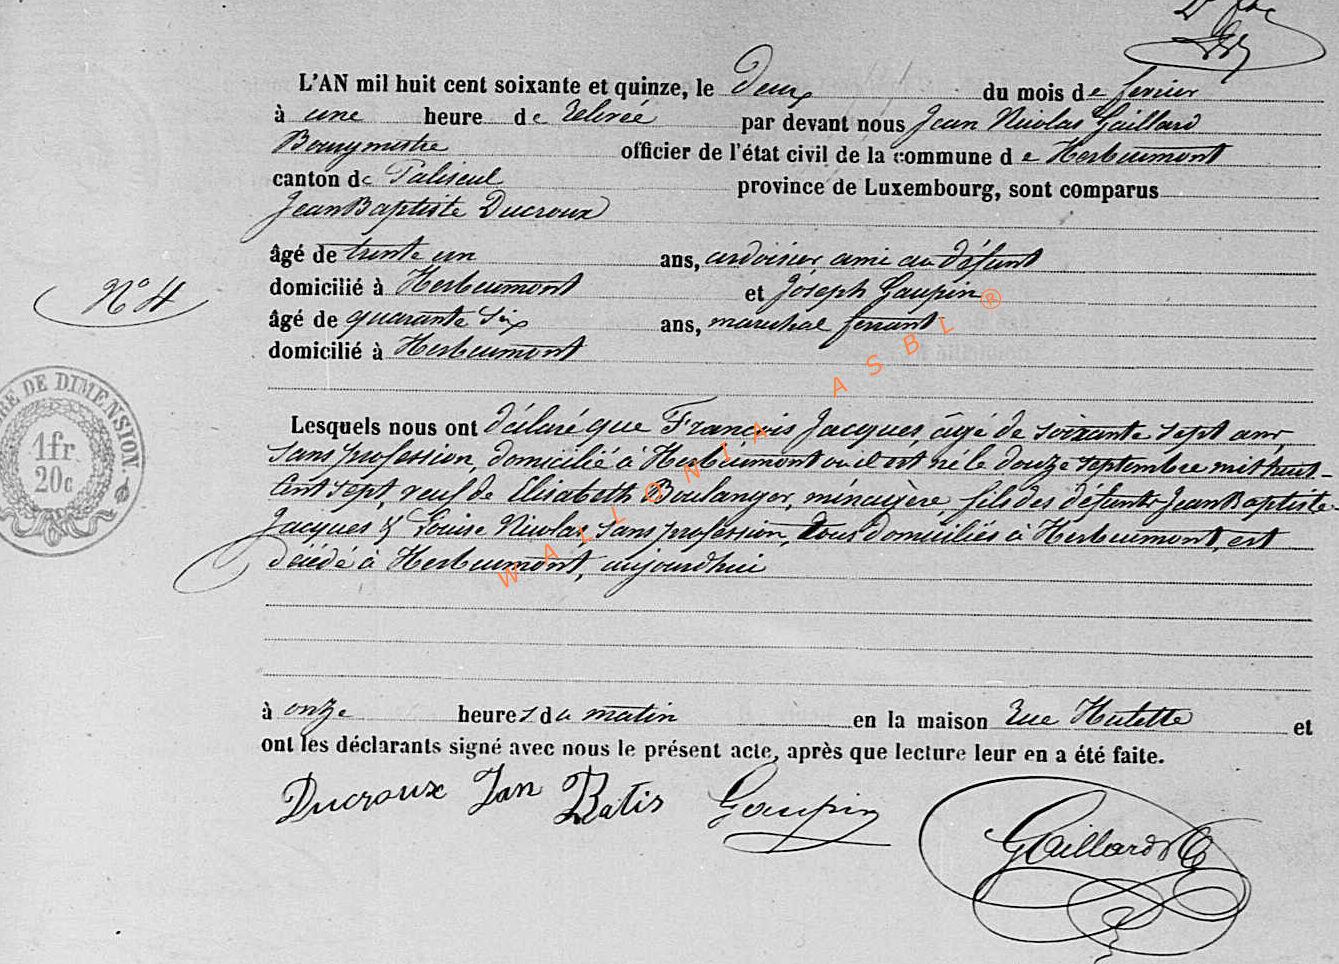 L'AN mil huit cent soixante et quinze, le Deux du mois de fevrier
à une heure de relevée par devant nous Jean Nicolas Gaillard
Bourgmestre officier de l'état civil de la commune de Herbeumont
canton de Paliseul province de Luxembourg, sont comparus
Jean Baptiste Ducroux
âgé de trente un ans, ardoisier ami au défunt
domicilié à Herbeumont et Joseph Goupin
âgé de quarante six ans, marechal ferrant
domicilié à Herbeumont
N° 4
TIMBRE DE DIMENSION.
1fr
20c
Lesquels nous ont déclaré que François Jacques, âgé de soixante sept ans,
sans profession, domicilié à Herbeumont où il est né le douze septembre mil huit
cent sept, veuf de Elisabeth Boulanger, ménagère, fils des défunts Jean Baptiste
Jacques & Louise Nicolas, sans profession, tous domiciliés à Herbeumont, est
décédé à Herbeumont, aujourdhui
à onze heures du matin en la maison rue Hulette et
ont les déclarants signé avec nous le présent acte, après que lecture leur en a été faite.
Ducroux Jan Batis Goupin Gaillard
WALLONIA ASBL ®